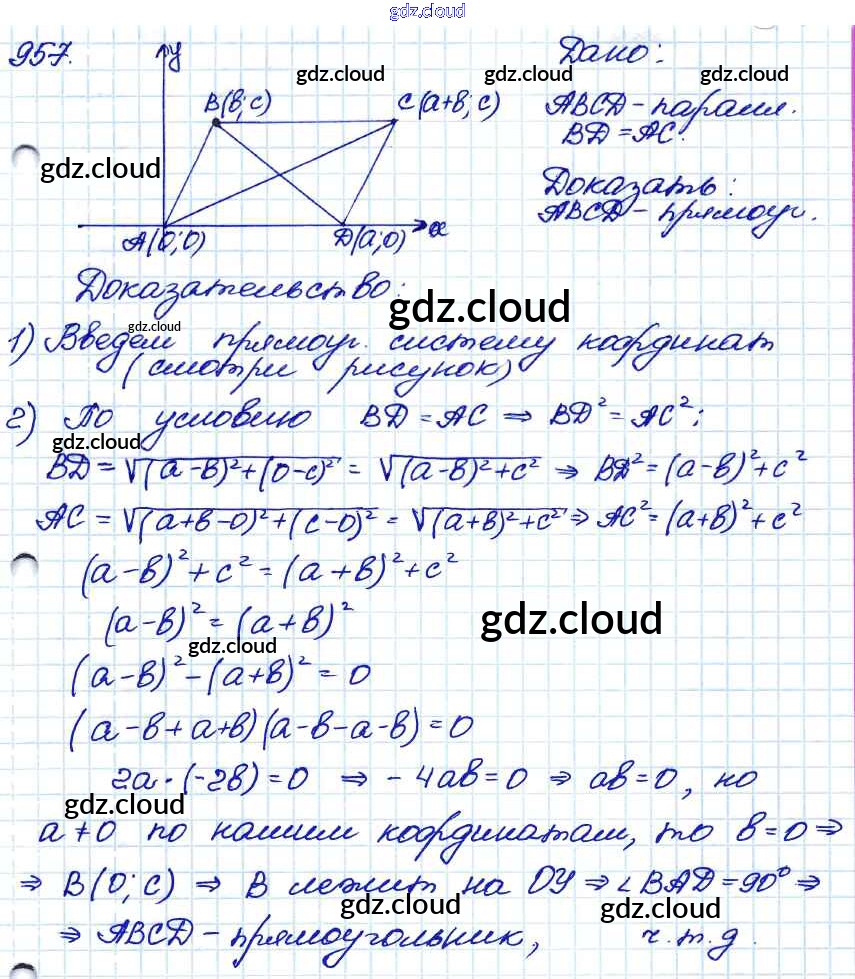 gdz.cloud
957.
y
gdz.cloud
Дано:
B(в;с)
C(a+в;с)
ABCD - паралл.
BD = AC.
gdz.cloud
gdz.cloud
Доказать:
ABCD - прямоуг.
A(0;0)
D(a;0)
x
Доказательство:
gdz.cloud
gdz.cloud
1) Введем прямоуг. систему координат
(смотри рисунок)
2) По условию BD = AC ⇒ BD² = AC²;
gdz.cloud
BD = √(a-в)²+(0-с)² = √(a-в)²+с² ⇒ BD² = (a-в)²+с²
AC = √(a+в-0)²+(с-0)² = √(a+в)²+с² ⇒ AC² = (a+в)²+с²
(a-в)²+с² = (a+в)²+с²
(a-в)² = (a+в)²
gdz.cloud
gdz.cloud
(a-в)² - (a+в)² = 0
(a-в+a+в)(a-в-a-в) = 0
2a·(-2в) = 0 ⇒ -4aв = 0 ⇒ aв = 0, но
gdz.cloud
a ≠ 0 по нашим координатам, то в = 0 ⇒
⇒ B(0;с) ⇒ B лежит на ОУ ⇒ ∠BAD = 90° ⇒
gdz.cloud
gdz.cloud
⇒ ABCD - прямоугольник, ч.т.д.
gdz.cloud